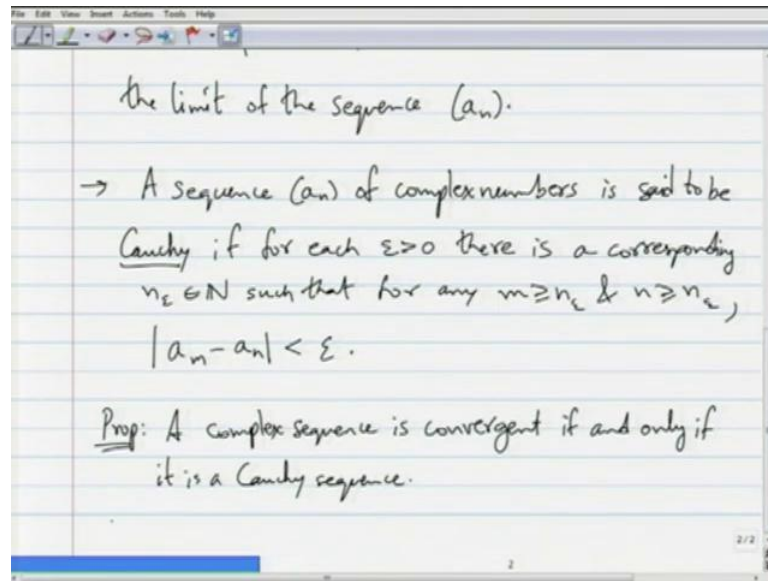 File Edit View Insert Actions Tools Help
the limit of the sequence (aₙ).
→ A sequence (aₙ) of complex numbers is said to be
Cauchy if for each ε>0 there is a corresponding
n_ε ∈ ℕ such that for any m ≥ n_ε & n ≥ n_ε,
|aₘ - aₙ| < ε.
Prop: A complex sequence is convergent if and only if
it is a Cauchy sequence.
2/2
2